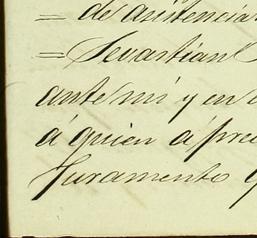 = de asistencia
= Sevastian
ante mi y en
á quien á pre
Juramento q